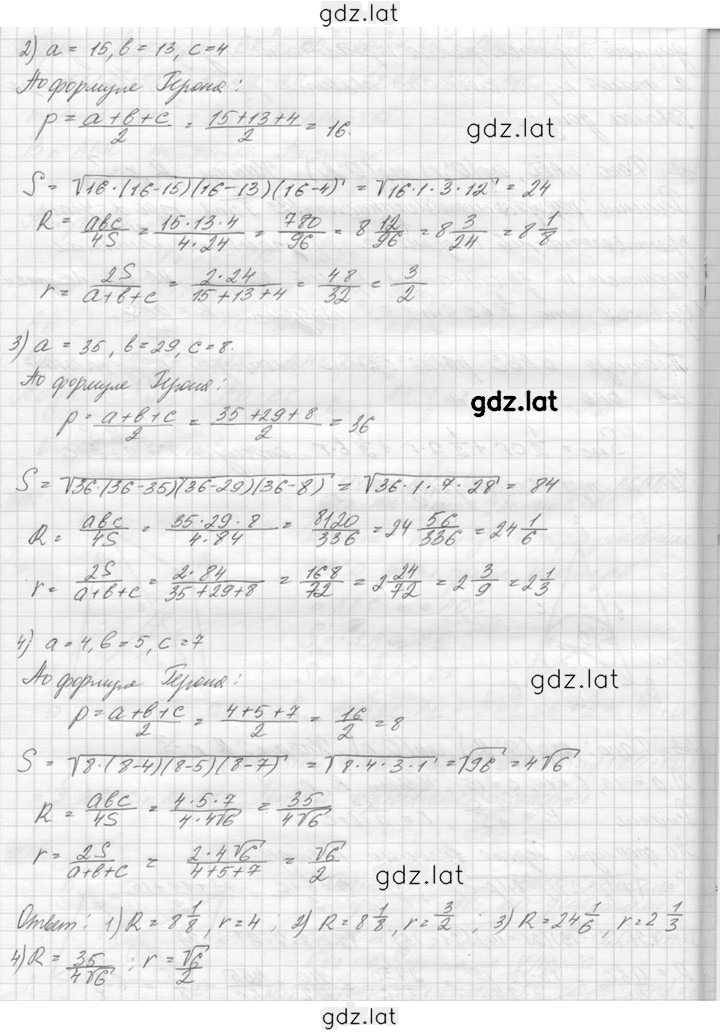 gdz.lat
2) a = 15, b = 13, c = 4
По формуле Герона:
p = (a+b+c)/2 = (15+13+4)/2 = 16.
gdz.lat
S = √(16·(16-15)(16-13)(16-4)) = √(16·1·3·12) = 24
R = abc/4S = (15·13·4)/(4·24) = 780/96 = 8 12/96 = 8 3/24 = 8 1/8
r = 2S/(a+b+c) = (2·24)/(15+13+4) = 48/32 = 3/2
3) a = 35, b = 29, c = 8.
По формуле Герона:
gdz.lat
p = (a+b+c)/2 = (35+29+8)/2 = 36
S = √(36·(36-35)(36-29)(36-8)) = √(36·1·7·28) = 84
R = abc/4S = (35·29·8)/(4·84) = 8120/336 = 24 56/336 = 24 1/6
r = 2S/(a+b+c) = (2·84)/(35+29+8) = 168/72 = 2 24/72 = 2 3/9 = 2 1/3
4) a = 4, b = 5, c = 7
По формуле Герона:
gdz.lat
p = (a+b+c)/2 = (4+5+7)/2 = 16/2 = 8
S = √(8·(8-4)(8-5)(8-7)) = √(8·4·3·1) = √96 = 4√6
R = abc/4S = (4·5·7)/(4·4√6) = 35/(4√6)
r = 2S/(a+b+c) = (2·4√6)/(4+5+7) = √6/2
gdz.lat
Ответ: 1) R = 8 1/8, r = 4; 2) R = 8 1/8, r = 3/2; 3) R = 24 1/6, r = 2 1/3
4) R = 35/(4√6); r = √6/2
gdz.lat